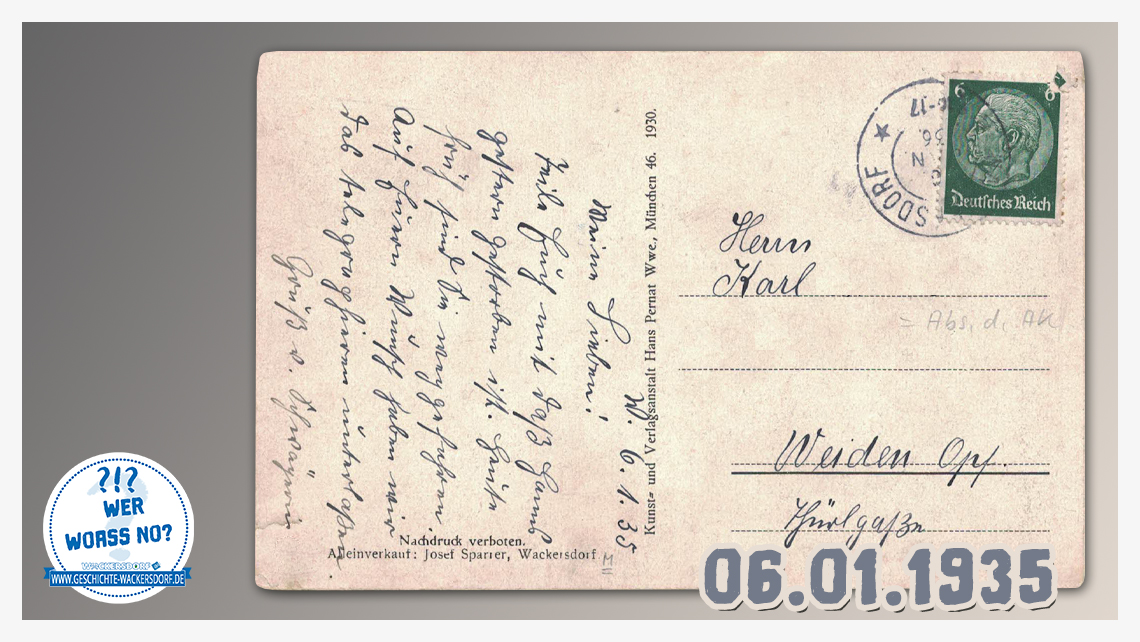 W. 6.1.35
Meine Lieben!
Teile Euch mit daß
gestern gestorben ist. Heute
früh sind Sie weggefahren.
Auf Euern Wunsch haben wir
das telegraphieren unterlaßen.
Gruß v. Schwägerin
Kunst- und Verlagsanstalt Hans Pernat Wwe., München 46. 1930.
Nachdruck verboten.
Alleinverkauf: Josef Sparrer, Wackersdorf.
M
6 6
Deutsches Reich
SDORF
-17
Herrn
Karl
= Abs. d. AK
Weiden Opf.
Thürlgaße
06.01.1935
?!?
WER
WORSS NO?
WACKERSDORF
WWW.GESCHICHTE-WACKERSDORF.DE